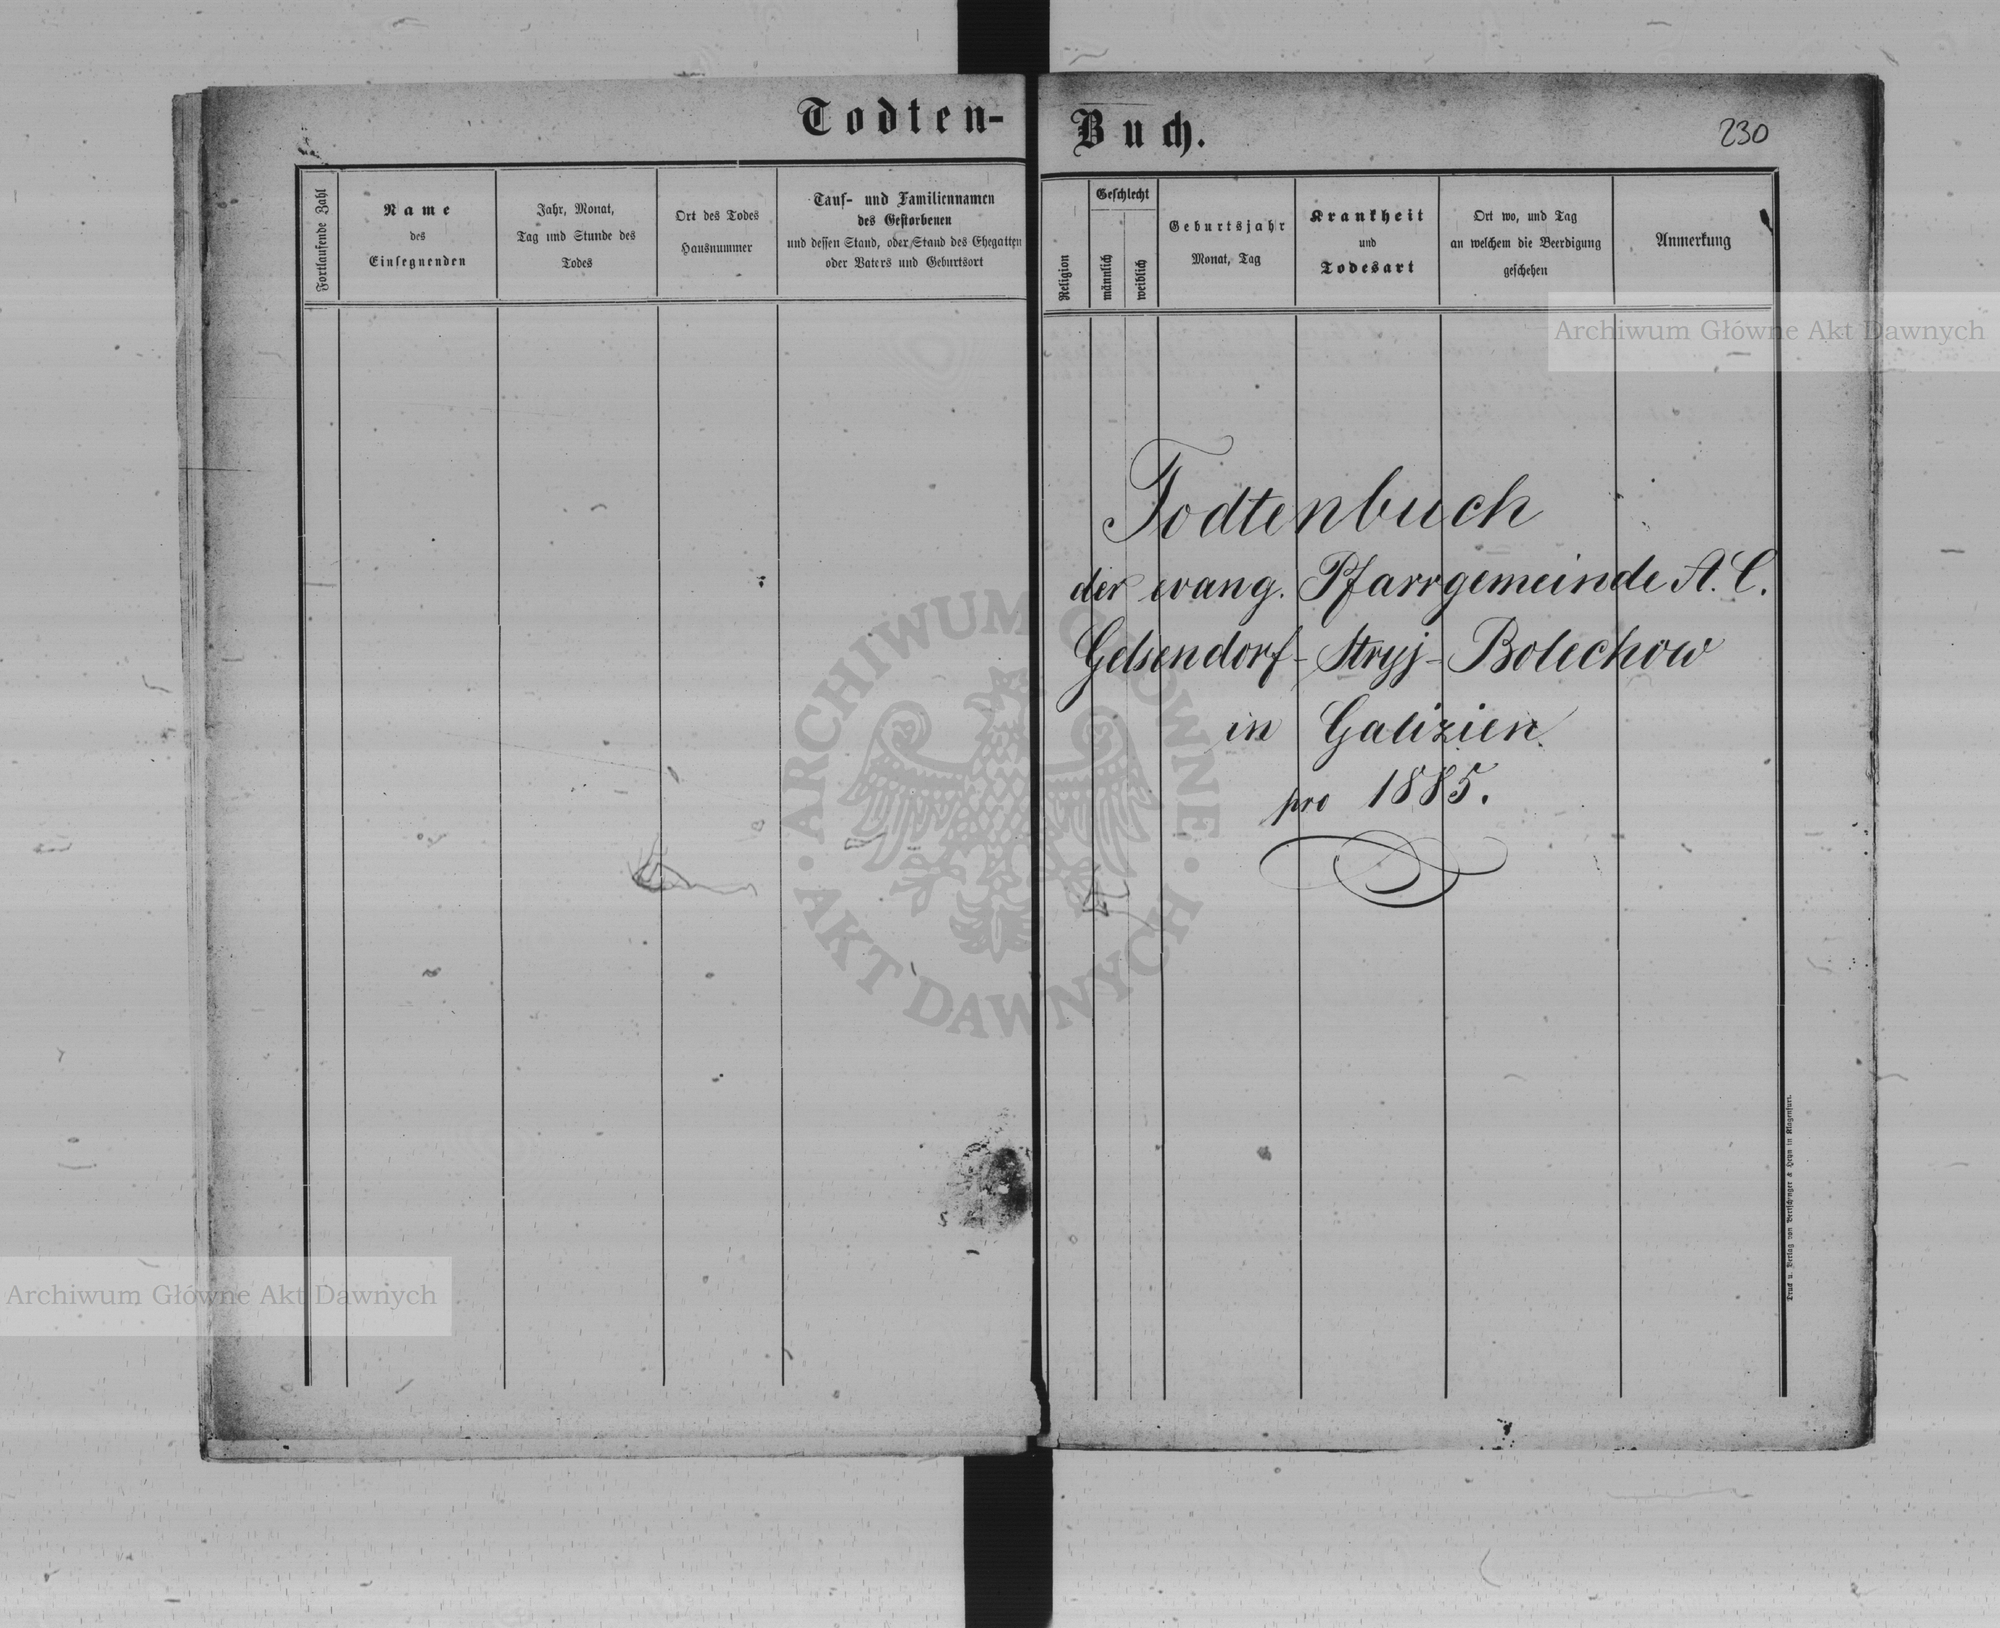 Todten-Buch.
230
Fortlaufende Zahl
Name
des
Einsegnenden
Jahr, Monat,
Tag und Stunde des
Todes
Ort des Todes
Hausnummer
Tauf- und Familiennamen
des Gestorbenen
und dessen Stand, oder Stand des Ehegatten
oder Vaters und Geburtsort
Religion
Geschlecht
männlich
weiblich
Geburtsjahr
Monat, Tag
Krankheit
und
Todesart
Ort wo, und Tag
an welchem die Beerdigung
geschehen
Anmerkung
Archiwum Główne Akt Dawnych
Todtenbuch
der evang. Pfarrgemeinde A. C.
Gelsendorf-Stryj-Bolechow
in Galizien
pro 1885.
ARCHIWUM GŁÓWNE
AKT DAWNYCH
Druck u. Verlag von Bertschinger & Heyn in Klagenfurt.
Archiwum Główne Akt Dawnych